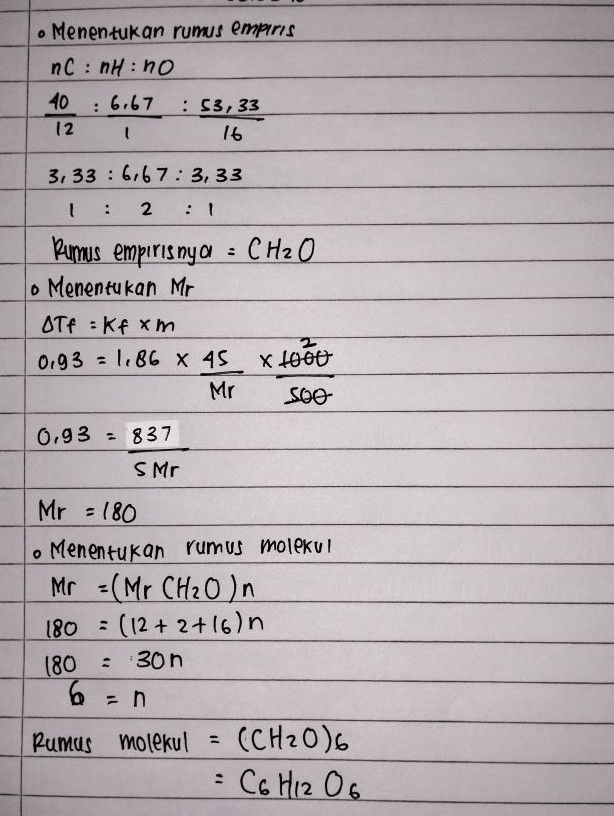 • Menentukan rumus empiris
nC : nH : nO
40/12 : 6,67/1 : 53,33/16
3,33 : 6,67 : 3,33
1 : 2 : 1
Rumus empirisnya = CH2O
• Menentukan Mr
ΔTf = Kf x m
0,93 = 1,86 x 45/Mr x 1000/500 2
0,93 = 837/5 Mr
Mr = 180
• Menentukan rumus molekul
Mr = (Mr CH2O)n
180 = (12 + 2 + 16)n
180 = 30n
6 = n
Rumus molekul = (CH2O)6
= C6H12O6